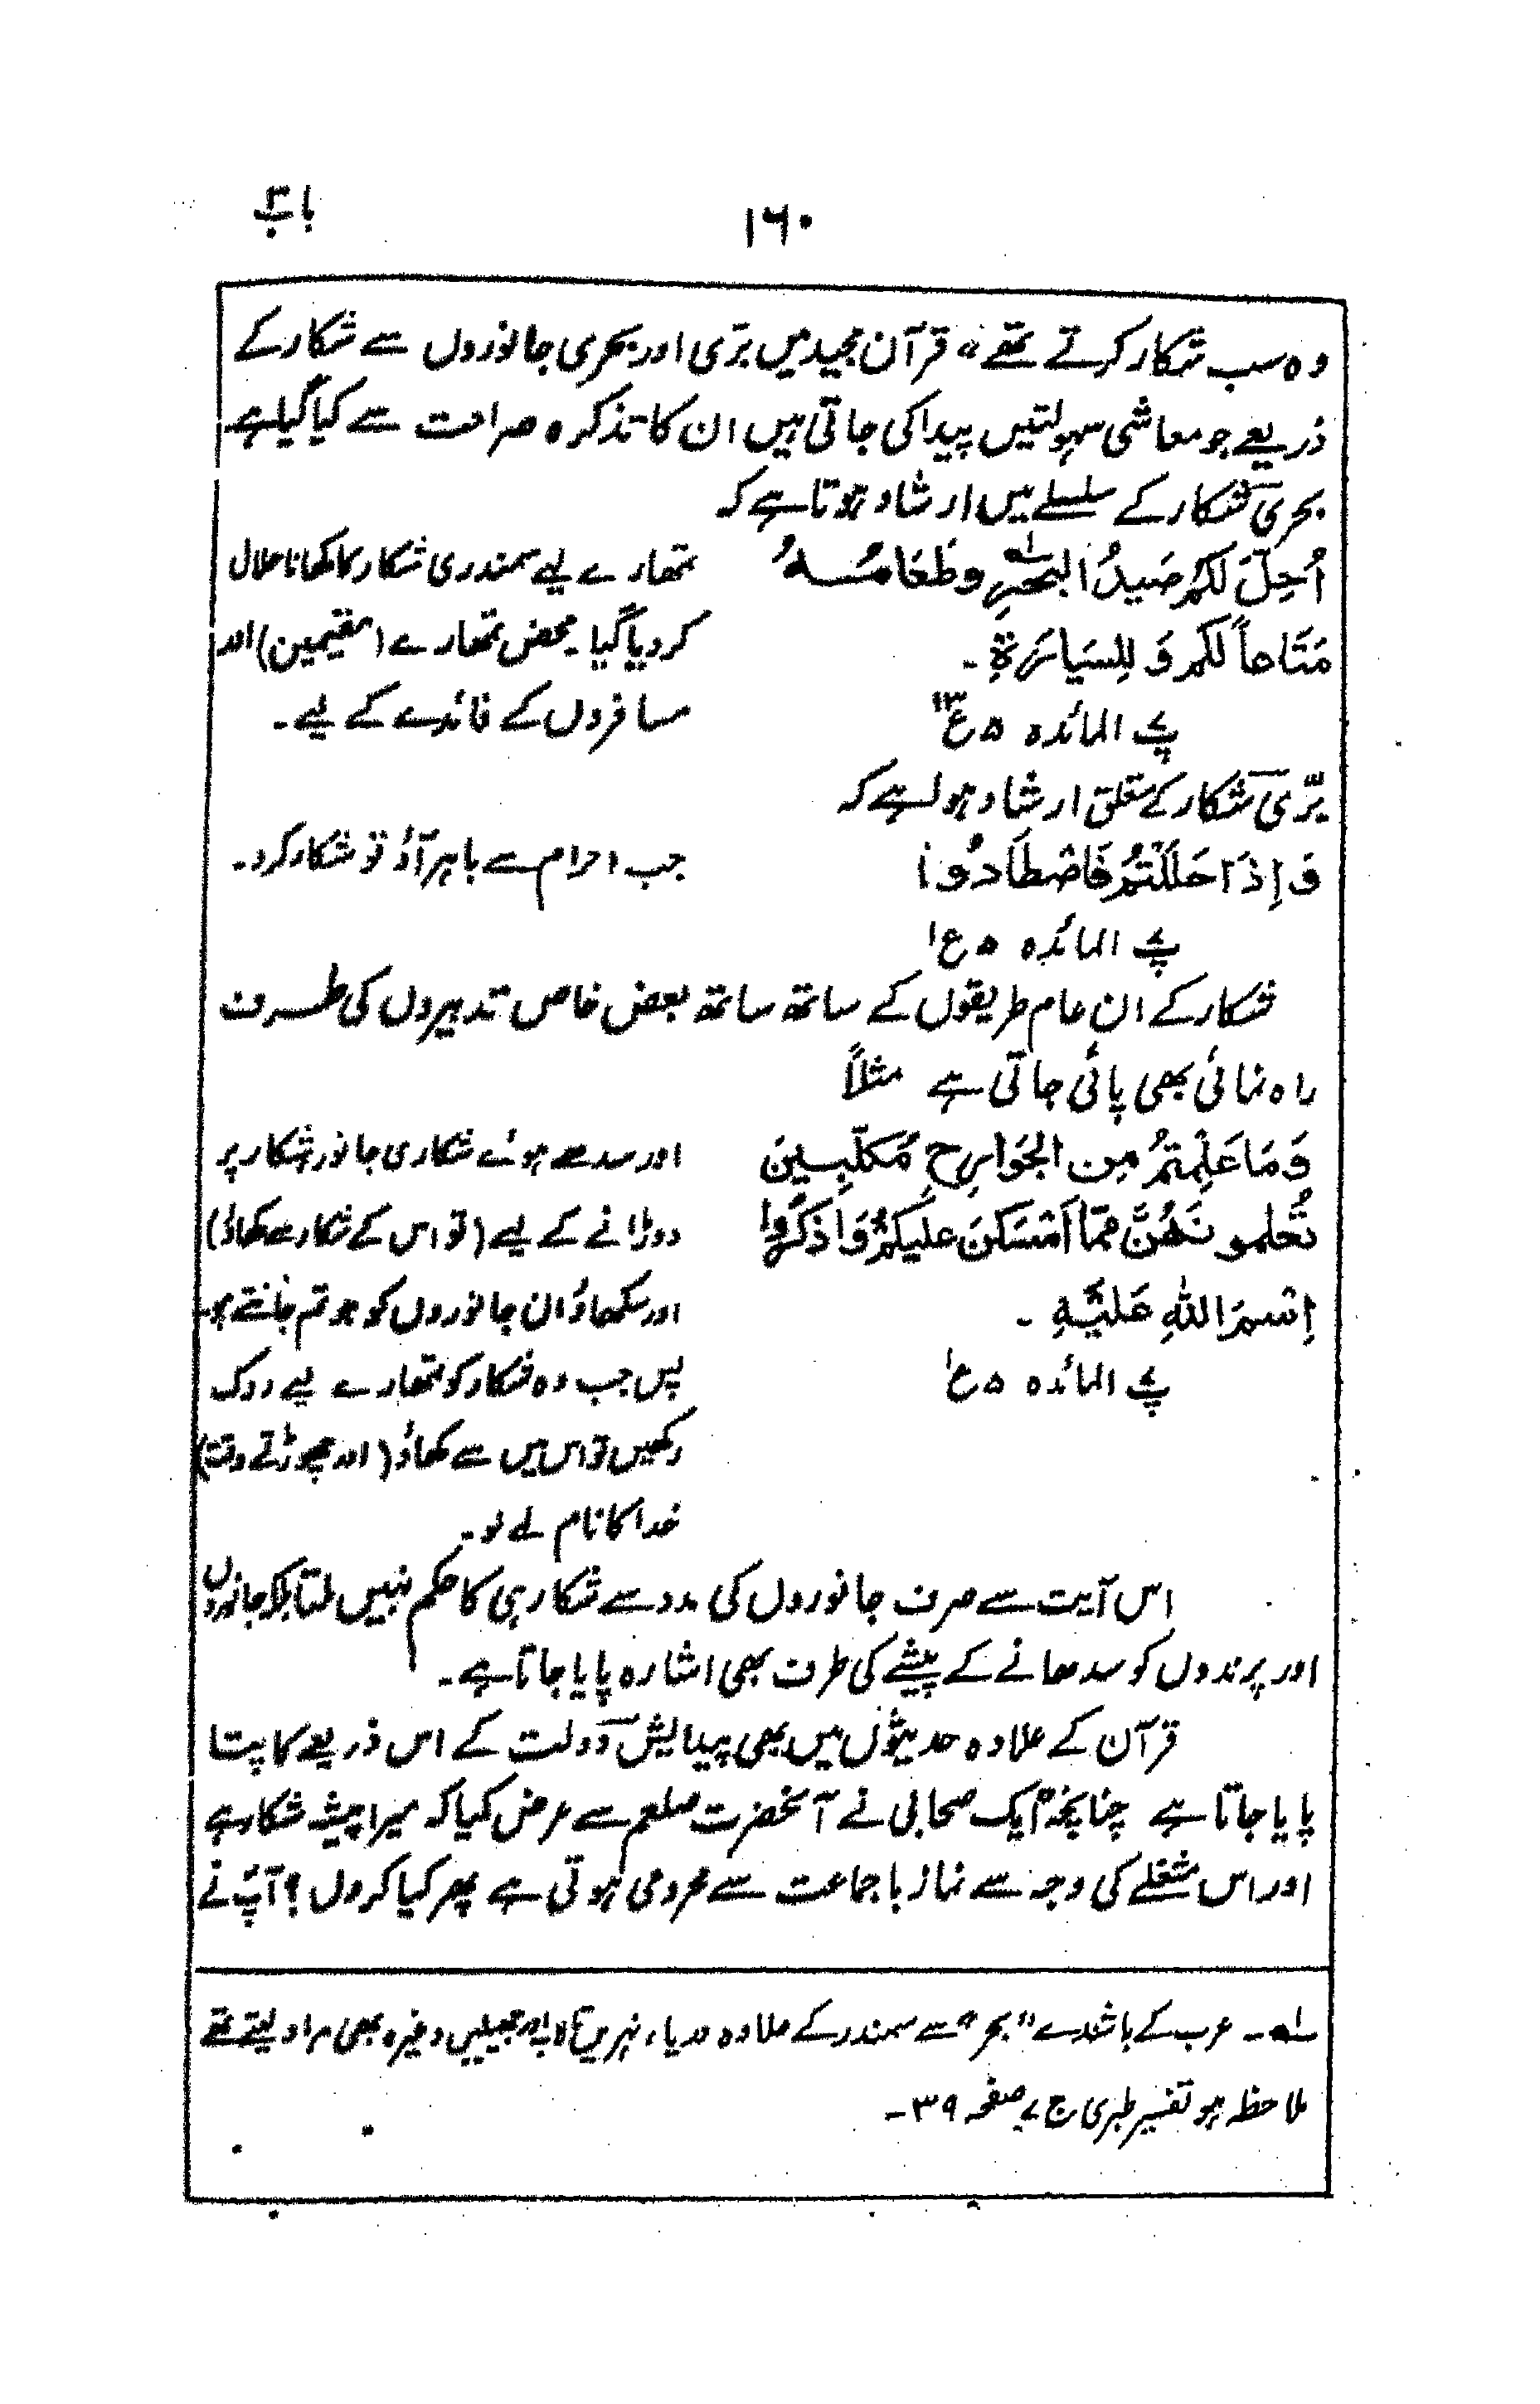 ۱۶۰
باب۳
وہ سب شکار کرتے تھے" قرآن مجید میں برّی اور بحری جانوروں سے شکار کے
ذریعے جو معاشی سہولتیں پیدا کی جاتی ہیں ان کا تذکرہ صراحت سے کیا گیا ہے
بحری شکار کے سلسلے میں ارشاد ہوتا ہے کہ
اُحِلَّ لَکُمْ صَیدُ البَحْرِ ۱؎ وطَعَامُہٗ
مَتَاعاً لَکُم وَ لِلسَیَارَۃِ۔
پ۷ المائدہ ۵ ع۱۳
تمھارے لیے سمندری شکار کا کھانا حلال
کر دیا گیا۔ محض تمھارے (مقیمین) اور
مسافروں کے فائدے کے لیے۔
برّی شکار کے متعلق ارشاد ہوا ہے کہ
وَ اِذَا حَلَلْتُمْ فَاصْطَادُوا
پ۶ المائدہ ۵ ع۱
جب احرام سے باہر آؤ تو شکار کرو۔
شکار کے ان عام طریقوں کے ساتھ ساتھ بعض خاص تدبیروں کی طرف
راہ نمائی بھی پائی جاتی ہے مثلاً
وَ مَا عَلِمْتُمْ مِن الجَوَارِحِ مُکَلِّبِینَ
تُعَلمونَھُنَّ مِمّا اَمْسَکنَ علیکُمْ وَ اذکُرُوا
اِسْمَ اللّٰہِ عَلَیْہِ ۔
پ۶ المائدہ ۵ ع۱
اور سدھے ہوئے شکاری جانور شکار پر
دوڑانے کے لیے (تو اس کے شکار سے کھاؤ)
اور سکھاؤ ان جانوروں کو جو تم جانتے ہو۔
پس جب وہ شکار کو تمھارے لیے روک
رکھیں تو اس میں سے کھاؤ (اور چھوڑتے وقت)
خدا کا نام لے لو۔
اس آیت سے صرف جانوروں کی مدد سے شکار ہی کا حکم نہیں ملتا بلکہ جانوروں
اور پرندوں کو سدھانے کے پیشے کی طرف بھی اشارہ پایا جاتا ہے۔
قرآن کے علاوہ حدیثوں میں بھی پیدایش دولت کے اس ذریعے کا پتا
پایا جاتا ہے چنانچہ ایک صحابی نے آنحضرت صلعم سے عرض کیا کہ میرا پیشہ شکار ہے
اور اس مشغلے کی وجہ سے نماز باجماعت سے محرومی ہوتی ہے پھر کیا کروں؟ آپؐ نے
۱؎۔ عرب کے باشندے "بحر" سے سمندر کے علاوہ دریا، نہریں تالاب اور جھیلیں وغیرہ بھی مراد لیتے تھے
ملاحظہ ہو تفسیر طبری ج ۷ صفحہ ۳۹۔